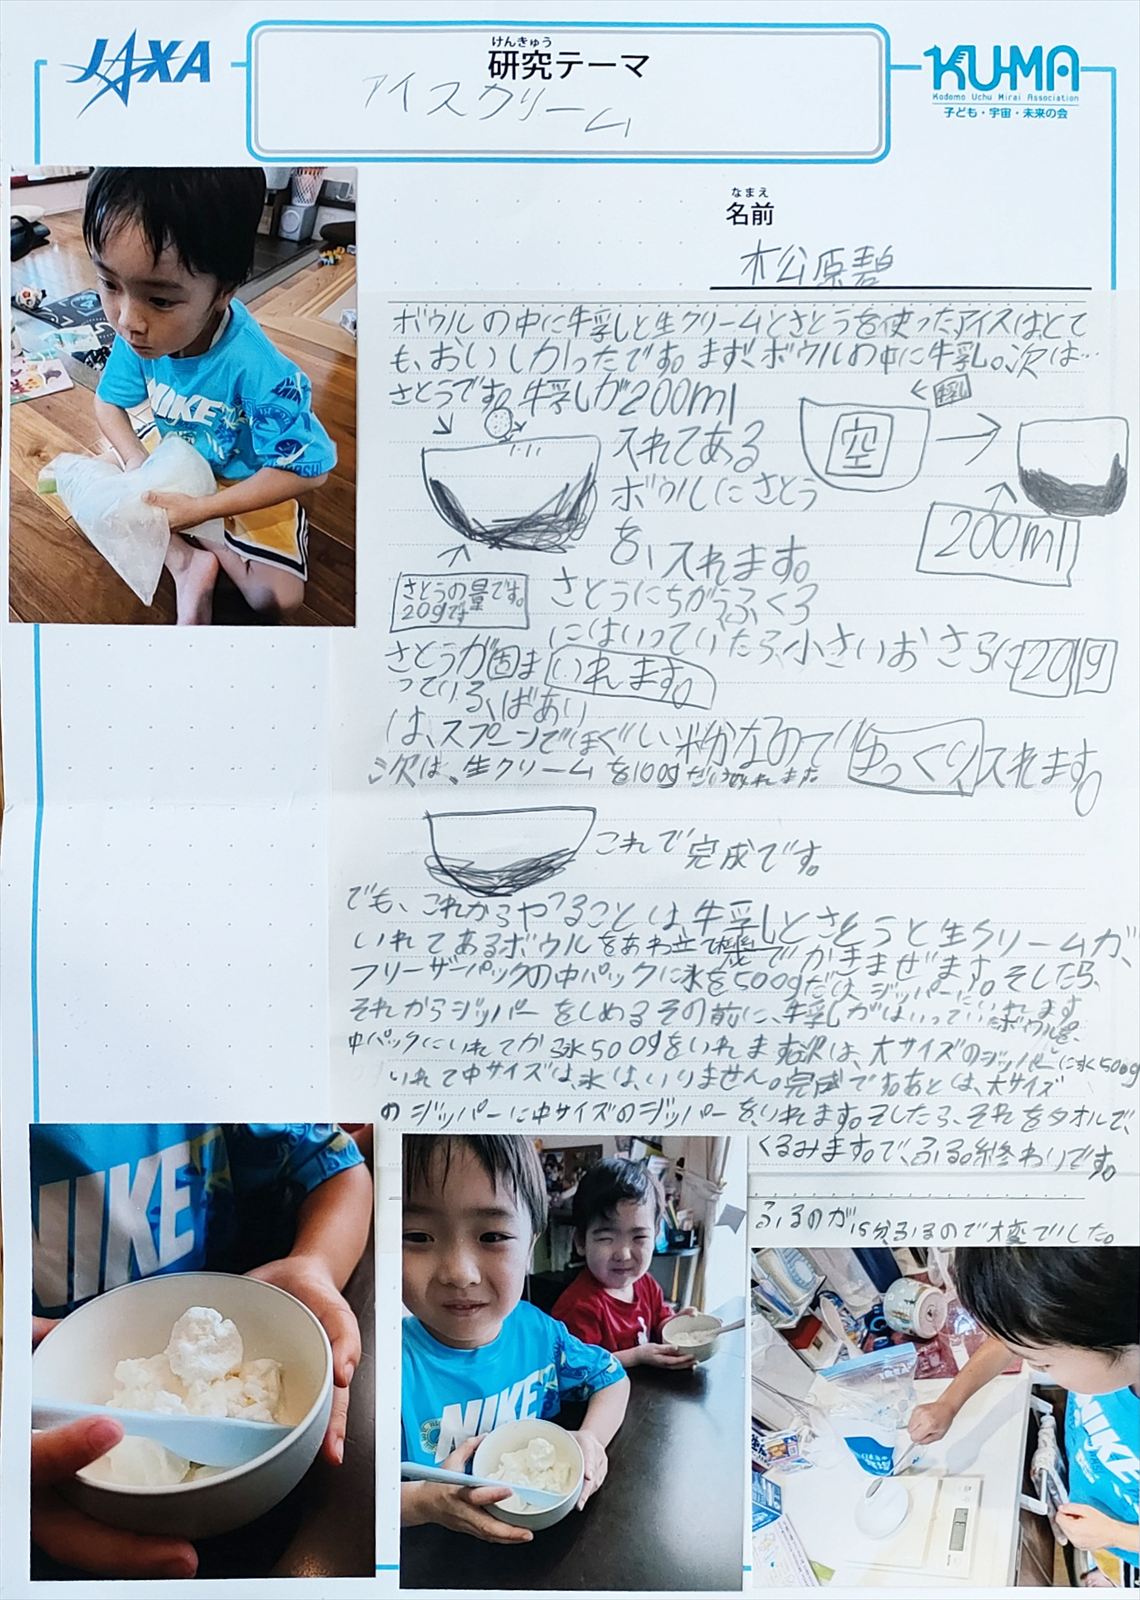 JAXA
けんきゅう
研究テーマ
アイスクリーム
KU-MA
Kodomo Uchu Mirai Association
子ども・宇宙・未来の会
なまえ
名前
松原碧
ボウルの中に牛乳と生クリームとさとうを使ったアイスはとて
も、おいしかったです。まず、ボウルの中に牛乳。次は…
さとうです。牛乳が200ml
入れてある
ボウルにさとう
を、入れます。
牛乳
空
200ml
さとうの量です。
20gです
さとうにちがうふくろ
にはいっていたら、小さいおさらに20g
いれます。
さとうが固ま
っている、ばあい
は、スプーンでほぐしい粉なので ゆっくり入れます。
次は、生クリームを100gだけいれます
これで完成です。
でも、これからやることは牛乳とさとうと生クリームが、
いれてあるボウルをあわ立て機でかきまぜます。そしたら、
フリーザーパックの中パックに氷を500gだけ、ジッパーにいれます
それからジッパーをしめるその前に、牛乳がはいっていたボウルを、
中パックにいれてから氷500gをいれます次は、大サイズのジッパーに氷500g
いれて中サイズは氷は、いりません。完成であとは、大サイズ
のジッパーに中サイズのジッパーを、いれます。そしたら、それをタオルで、
くるみます。で、ふる。終わりです。
ふるのが15分ふるので大変でした。
NIKE
NIKE
NIKE
NIKE